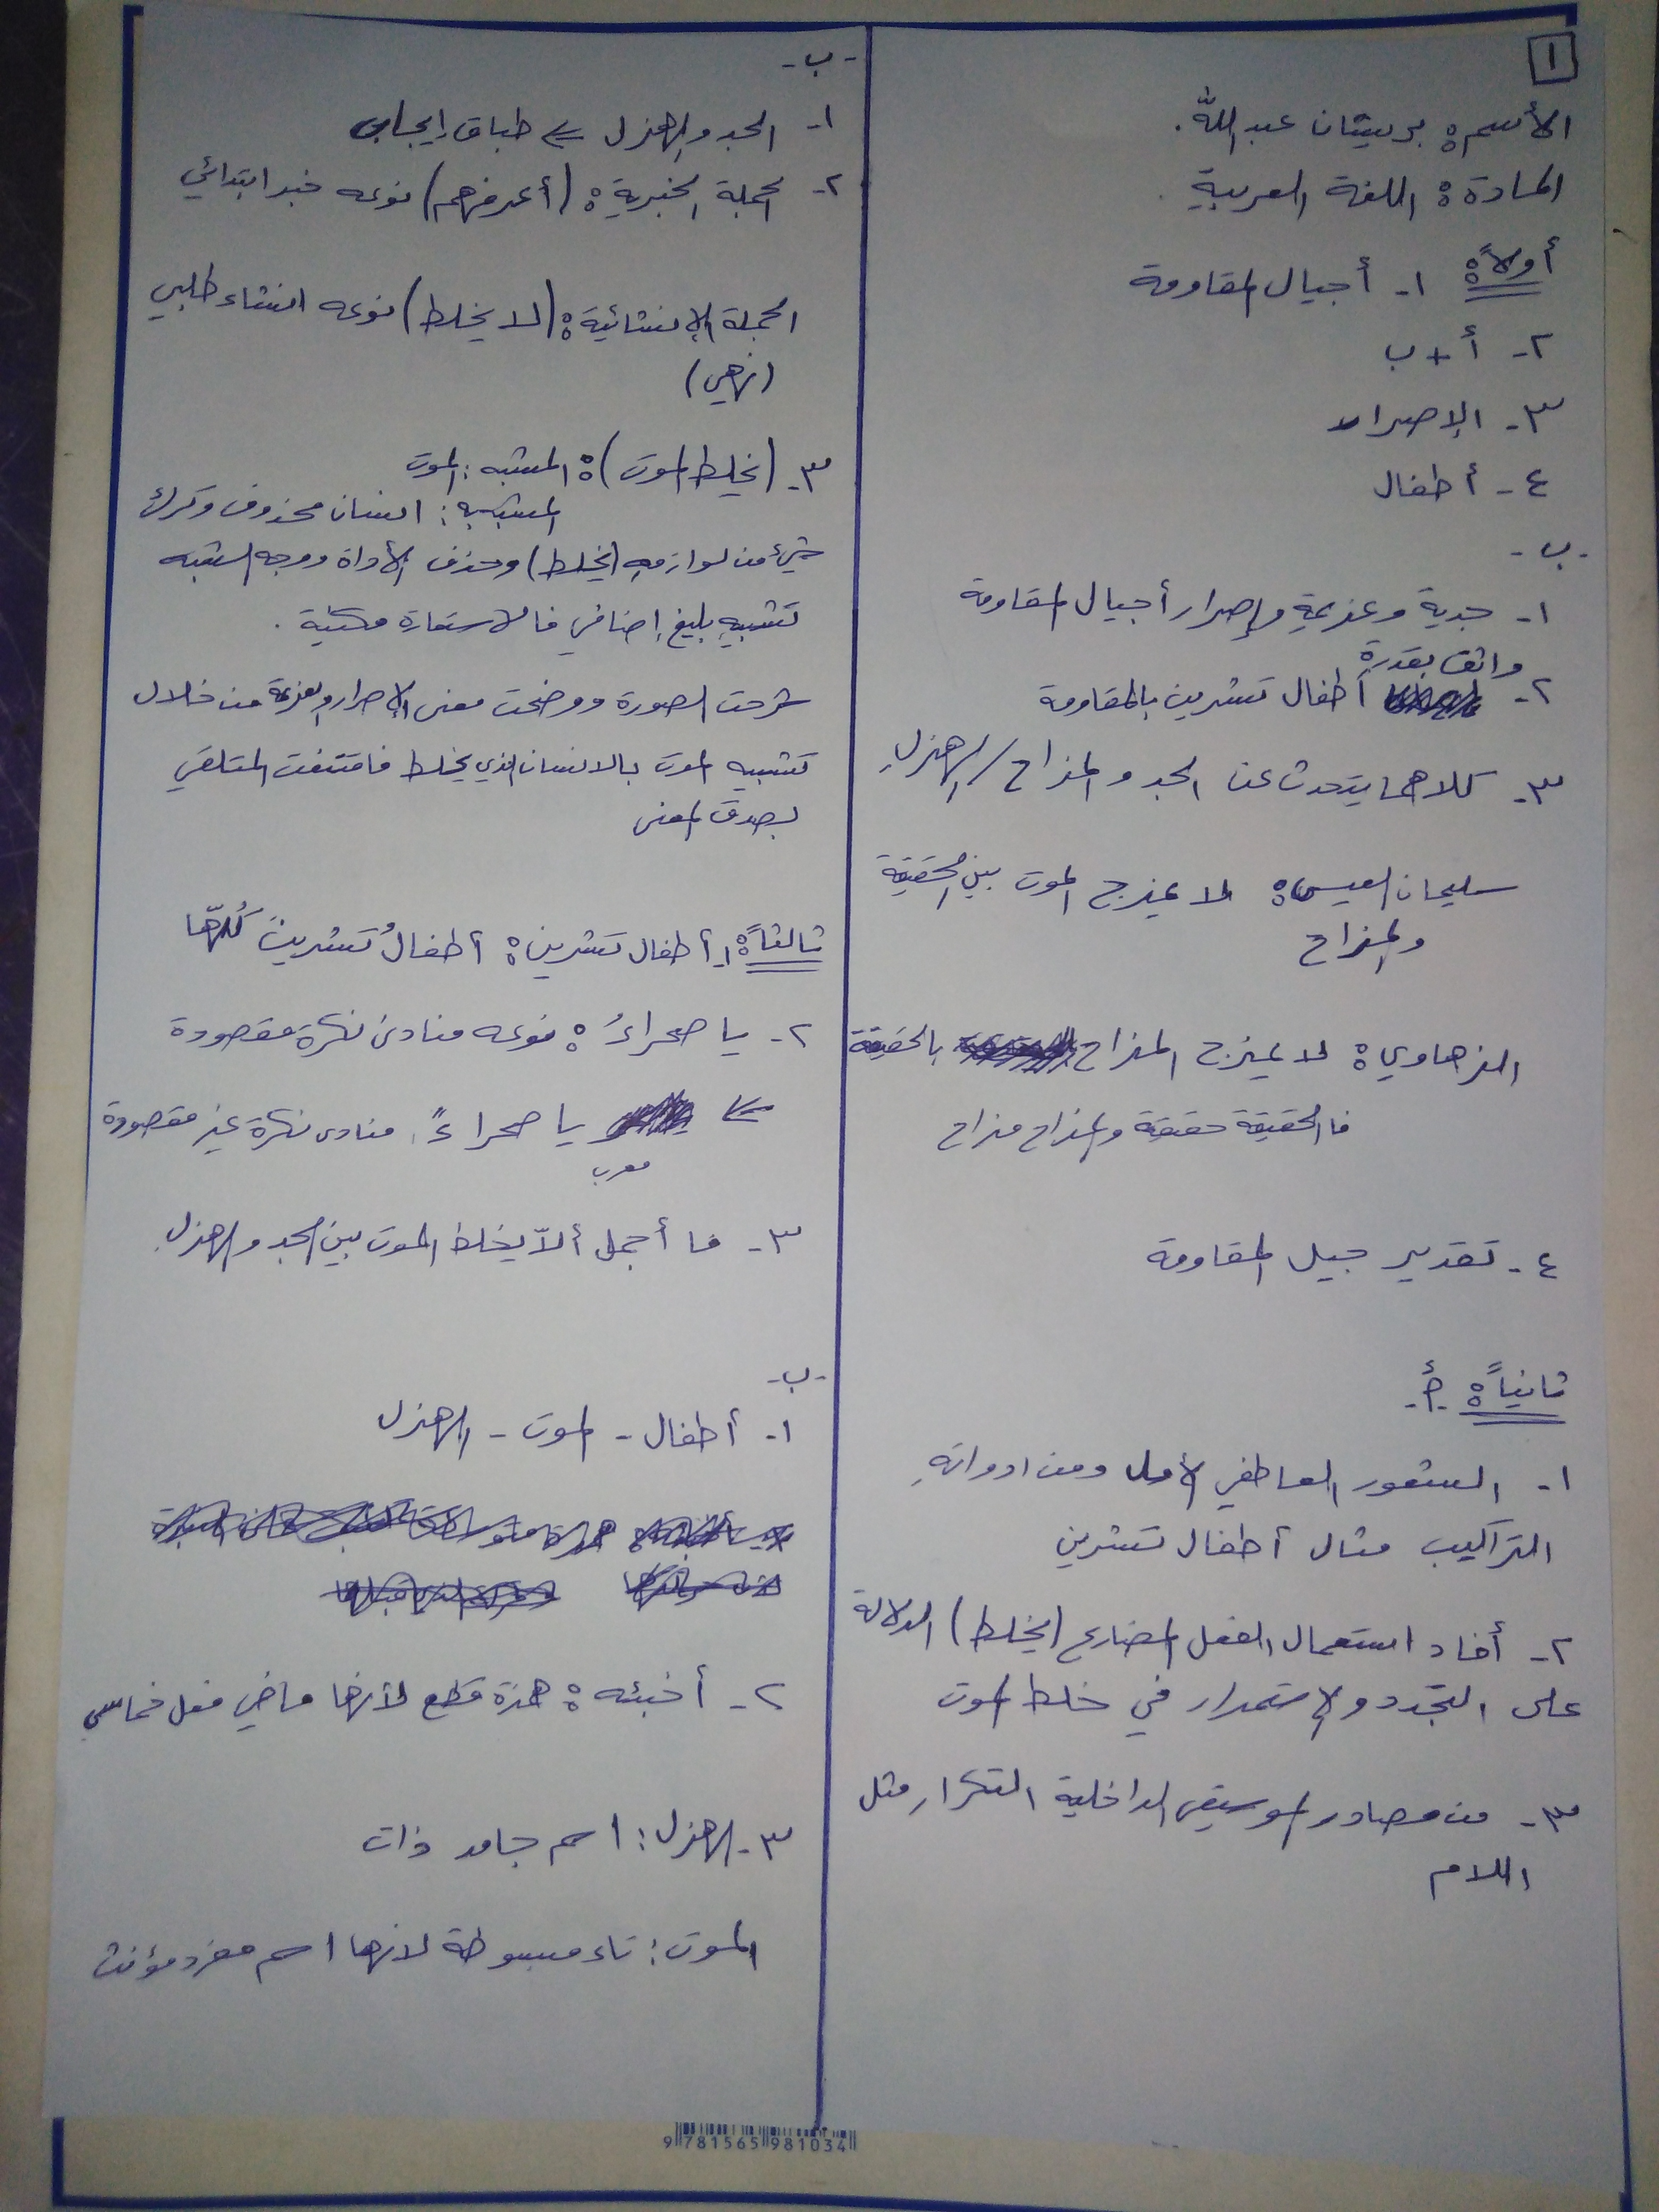 ١
الأسم: بريتان عبد الله.
المادة: اللغة العربية.
أولاً: ١- أجيال المقاومة
٢- أ + ب
٣- الإصرار
٤- أطفال
- ب -
١- جدية وعزيمة وإصرار أجيال المقاومة
واثق بقدرة
٢- أطفال تشرين بالمقاومة
٣- كلاهما يتحدث عن الجد و المزاح / الهزل
سليمان العيسى: لا يمزج الموت بين الحقيقة
والمزاح
الزهاوي: لا يمزج المزاح بالحقيقة
فالحقيقة حقيقة والمزاح مزاح
٤- تقدير جيل المقاومة
ثانياً: -أ-
١- الشعور العاطفي الأمل ومن ادواته
التراكيب مثال أطفال تشرين
٢- أفاد استعمال الفعل المضارع (يخلط) الدلالة
على التجدد والإستمرار في خلط الموت
٣- من مصادر الموسيقى الداخلية التكرار مثل
اللام
- ب -
١- الجد والهزل ⇐ طباق إيجابي
٢- الجملة الخبرية: (أعرفهم) نوعه خبر ابتدائي
الجملة الإنشائية: (لا يخلط) نوعه انشاء طلبي
(نهي)
٣- (يخلط الموت): المشبه: الموت
المشبه به: انسان محذوف وترك
شيء من لوازمه (يخلط) وحذف الأداة ووجه الشبه
تشبيه بليغ إضافي فالاستعارة مكنية.
شرحت الصورة ووضحت معنى الإصرار والعزيمة من خلال
تشبيه الموت بالانسان الذي يخلط فاقتنفت المتلقي
بصدق المعنى
ثالثاً: ١- أطفال تشرين: أطفالُ تشرينَ كُلهّا
٢- يا صحراءُ: نوعه منادى نكرة مقصودة
⇐ يا صحراءً: منادى نكرة غير مقصودة
معرب
٣- ما أجمل ألاّ يخلط الموت بين الجد والهزل
- ب -
١- أطفال - الموت - الهزل
٢- أخبئه: همزة قطع لأنها ماضي فعل خماسي
٣- الهزل: اسم جامد ذات
الموت: تاء مبسوطة لانها اسم مفرد مؤنث
9 781565 981034